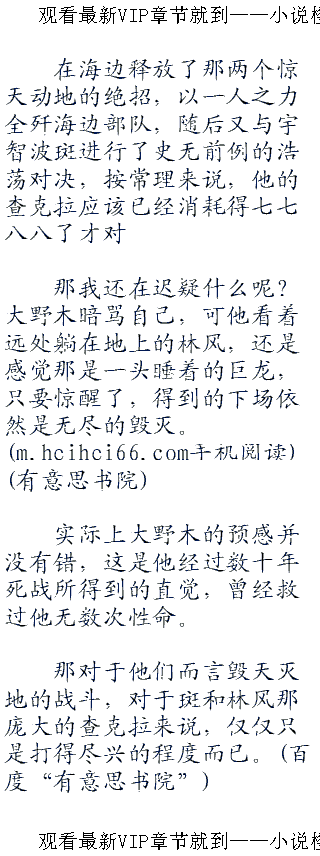 观看最新VIP章节就到——小说
在海边释放了那两个惊
天动地的绝招，以一人之力
全歼海边部队，随后又与宇
智波斑进行了史无前例的浩
荡对决，按常理来说，他的
查克拉应该已经消耗得七七
八八了才对
那我还在迟疑什么呢？
大野木暗骂自己，可他看着
远处躺在地上的林风，还是
感觉那是一头睡着的巨龙，
只要惊醒了，得到的下场依
然是无尽的毁灭。
(m.hcihci66.com手机阅读)
(有意思书院)
实际上大野木的预感并
没有错，这是他经过数十年
死战所得到的直觉，曾经救
过他无数次性命。
那对于他们而言毁天灭
地的战斗，对于斑和林风那
庞大的查克拉来说，仅仅只
是打得尽兴的程度而已。(百
度“有意思书院”)
观看最新VIP章节就到——小说